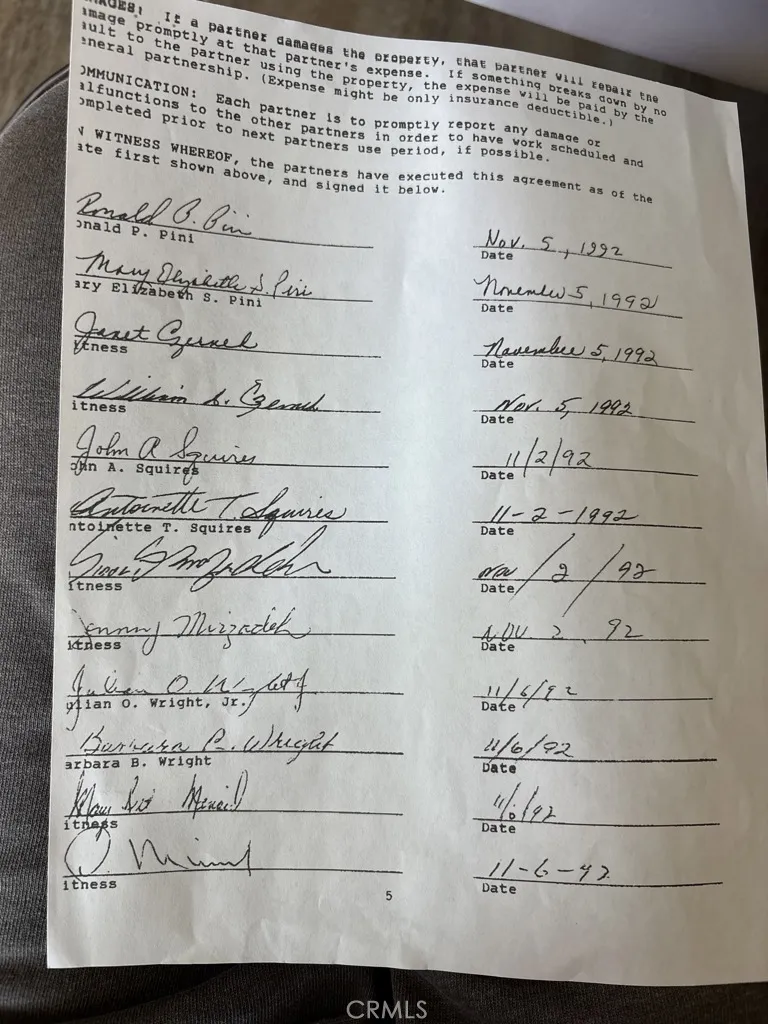 MAGES: If a partner damages the property, that partner will repair the
amage promptly at that partner's expense. If something breaks down by no
ault to the partner using the property, the expense will be paid by the
eneral partnership. (Expense might be only insurance deductible.)
OMMUNICATION: Each partner is to promptly report any damage or
alfunctions to the other partners in order to have work scheduled and
ompleted prior to next partners use period, if possible.
N WITNESS WHEREOF, the partners have executed this agreement as of the
ate first shown above, and signed it below.
Ronald P. Pini Nov. 5, 1992
onald P. Pini Date
Mary Elizabeth S. Pini November 5, 1992
ary Elizabeth S. Pini Date
Janet November 5, 1992
itness Date
William Nov. 5, 1992
itness Date
John A Squires 11/2/92
ohn A. Squires Date
Antoinette T. Squires 11-2-1992
ntoinette T. Squires Date
Nov/2/92
itness Date
Jenny Mirzadeh NOV 2, 92
itness Date
Julian O. Wright Jr 11/6/92
ulian O. Wright, Jr. Date
Barbara B. Wright 11/6/92
arbara B. Wright Date
11/6/92
itness Date
11-6-92
itness Date
5
CRMLS